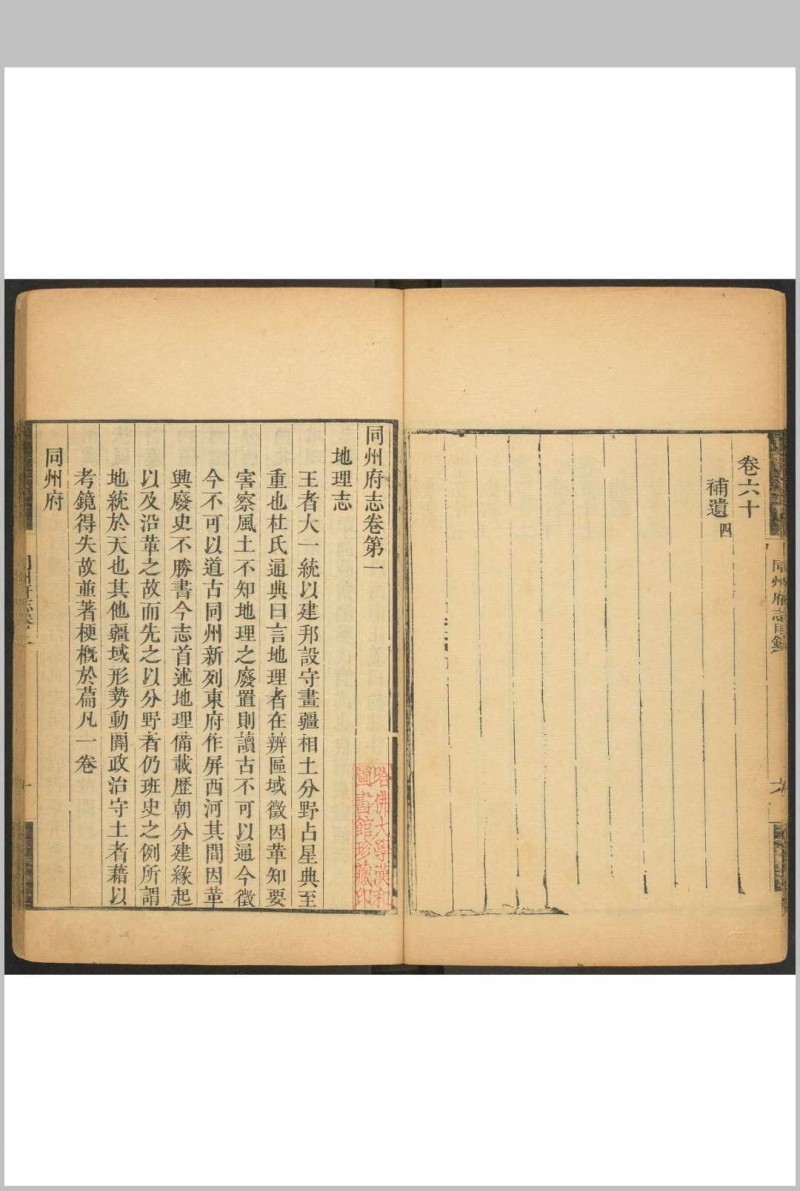 卷六十
補遺四
同州府志目錄
同州府志卷第一
地理志
王者大一統以建邦設守畫疆相土分野占星典至
重也杜氏通典曰言地理者在辨區域徵因革知要
害察風土不知地理之廢置則讀古不可以通今徵
今不可以道古同州新列東府作屏西河其間因革
興廢史不勝書今志首述地理備載歷朝分建緣起
以及沿革之故而先之以分野者仍班史之例所謂
地統於天也其他疆域形勢動關政治守土者藉以
考鏡得失故並著梗概於萹凡一卷
同州府
哈佛大學漢和
圖書館珍藏印